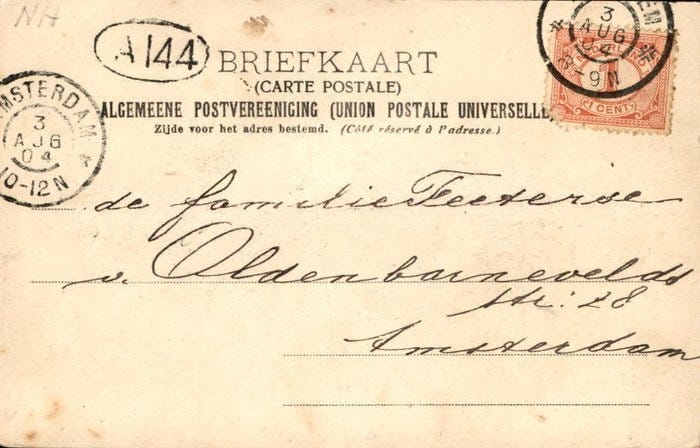 NH
A144
BRIEFKAART
(CARTE POSTALE)
ALGEMEENE POSTVEREENIGING (UNION POSTALE UNIVERSELLE
Zijde voor het adres bestemd. (Côté réservé à l'adresse.)
AMSTERDAM
3
AUG
04
10-12N
3
AUG
04
8-9N
1
1 CENT
de familie
v. Oldenbarneveldt
str: 28
Amsterdam